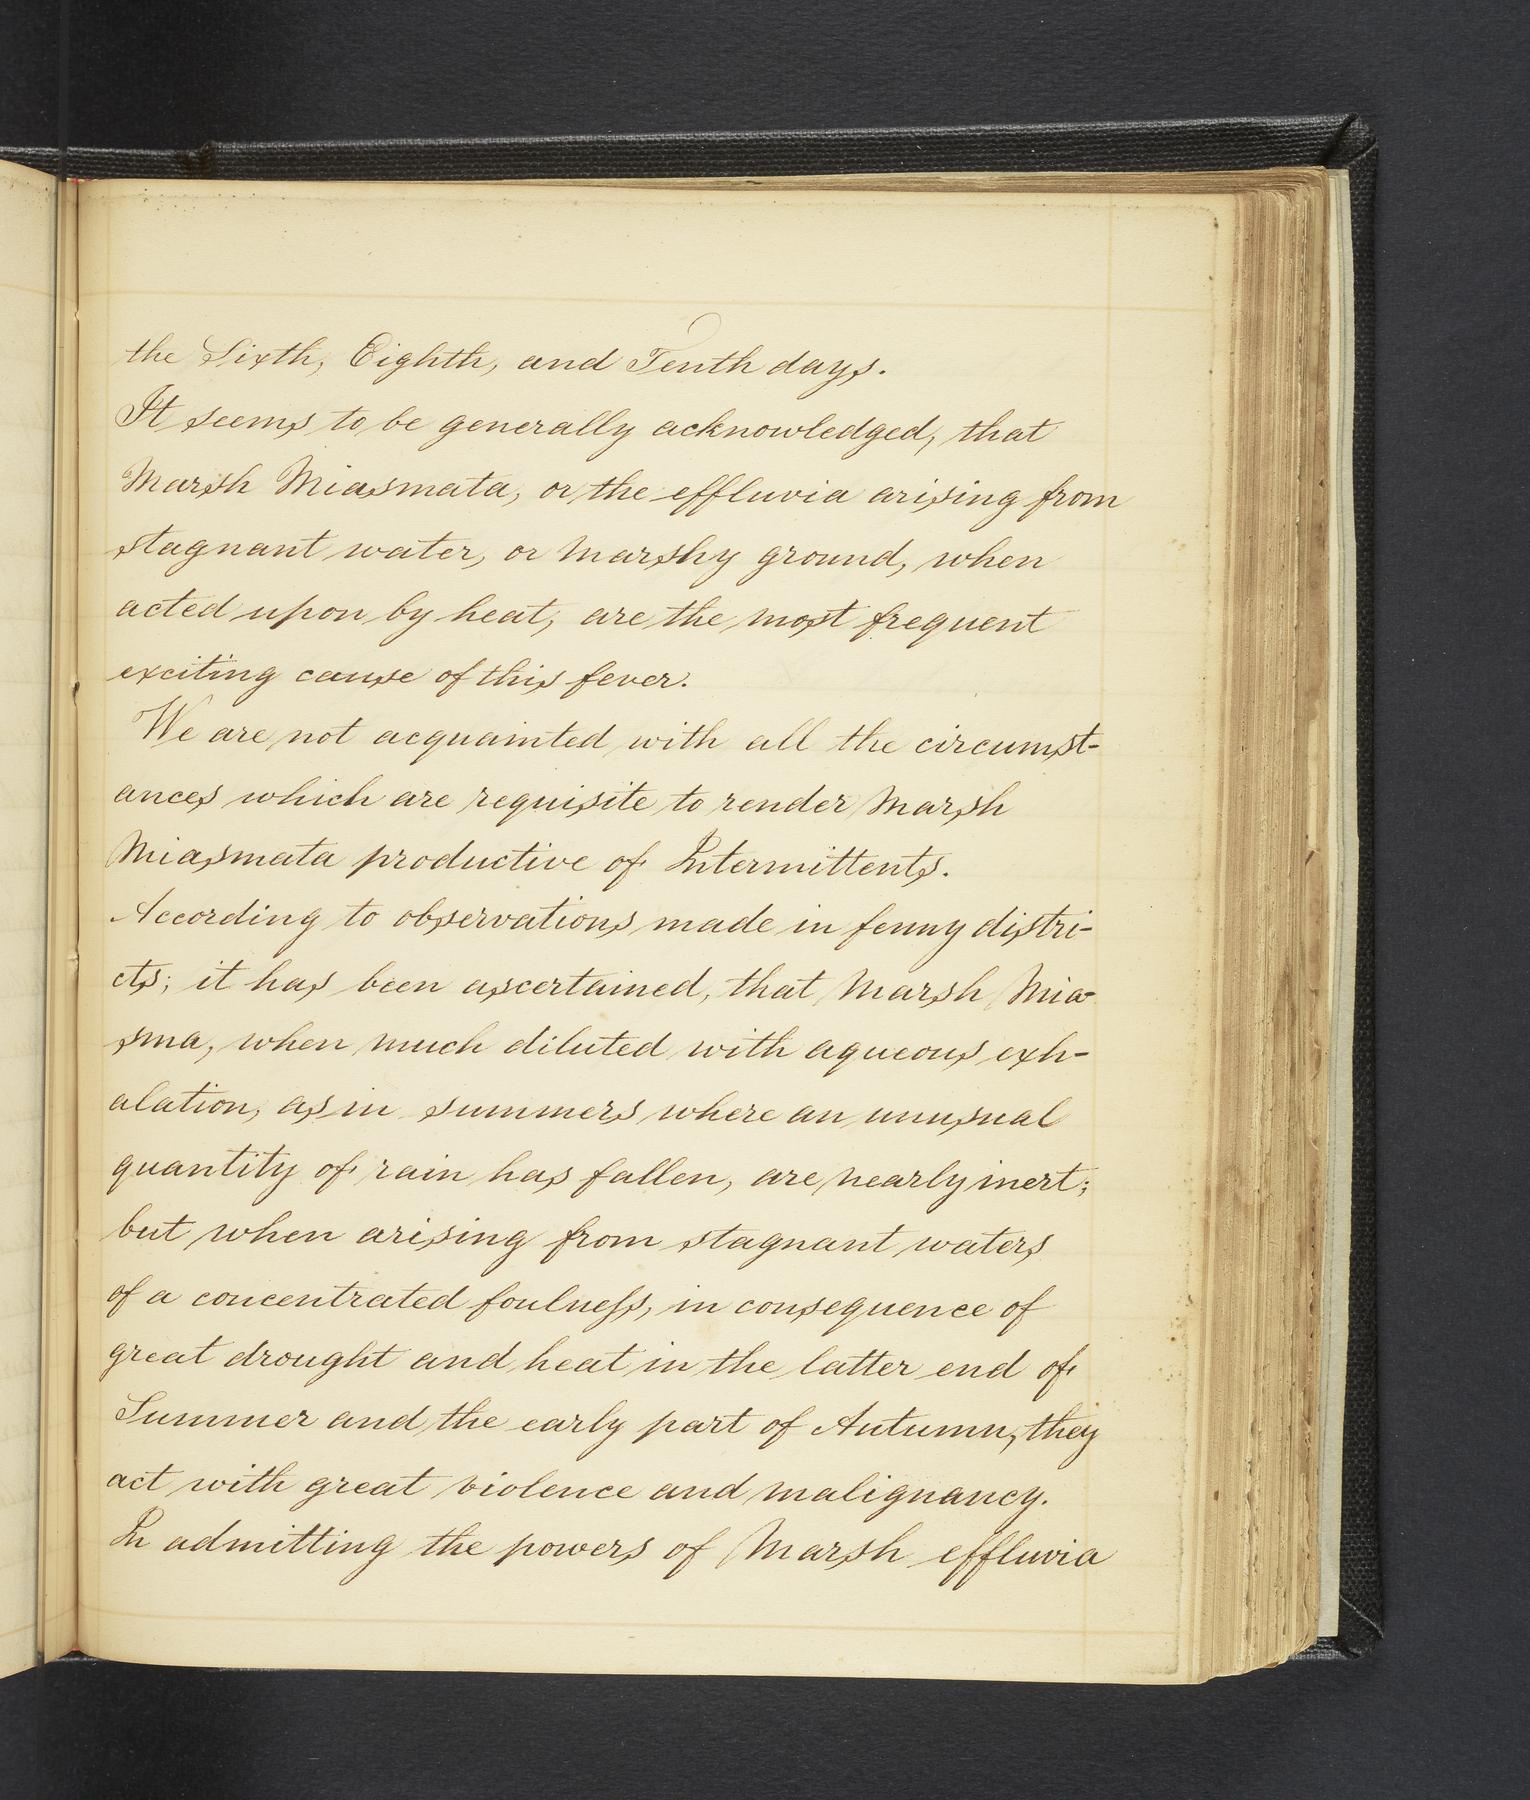 the Sixth, Eighth, and Tenth days.
It seems to be generally acknowledged, that
Marsh Miasmata, or the effluvia arising from
stagnant water, or Marshy ground, when
acted upon by heat, are the most frequent
exciting cause of this fever.
We are not acquainted with all the circumst-
ances which are requisite to render Marsh
Miasmata productive of Intermittents.
According to observations made in fenny distri-
cts; it has been ascertained, that Marsh Mia-
sma, when much diluted with aqueous exh-
alation, as in summers where an unusual
quantity of rain has fallen, are nearly inert;
but when arising from stagnant waters
of a concentrated foulness, in consequence of
great drought and heat in the latter end of
Summer and the early part of Autumn, they
act with great violence and malignancy.
In admitting the powers of Marsh effluvia